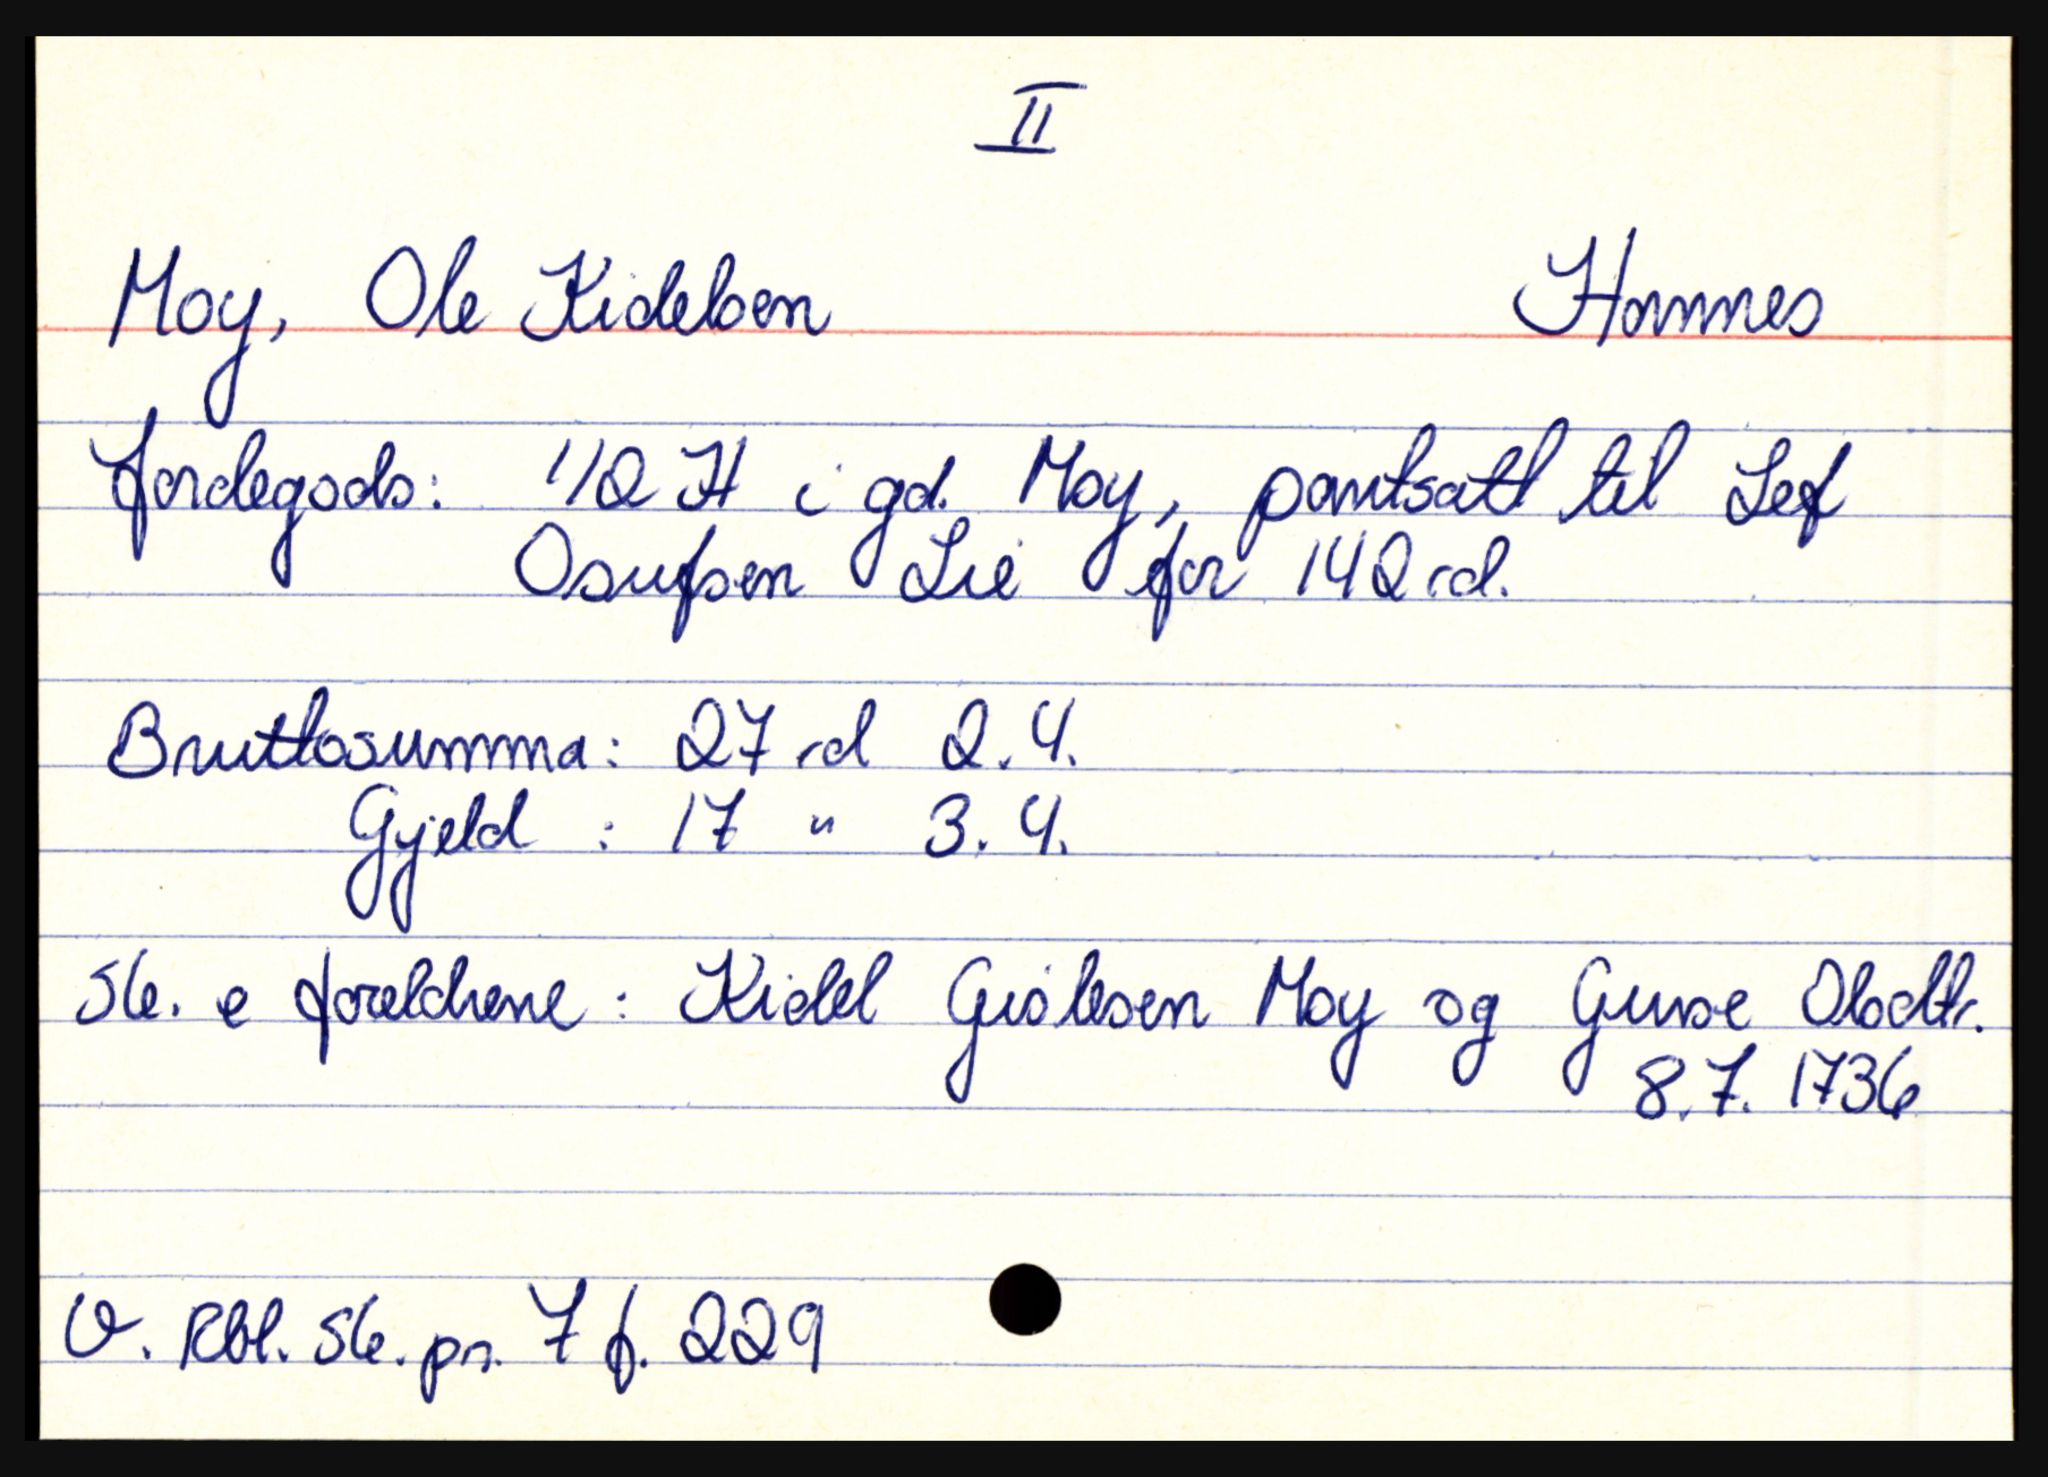 II
Moy, Ole Kidelsen Hommes
Jordegods: 1/2 H i gd. Moy, pantsatt til Lef
Osufsen Lie for 142 rd.
Bruttosumma: 27 rd 2. 4.
Gjeld : 17 " 3. 4.
Sk. e foreldrene : Kidel Gislesen Moy og Gunse Olsdtr.
8.7. 1736
V. Rbl. Sk. pr. 7 f. 229